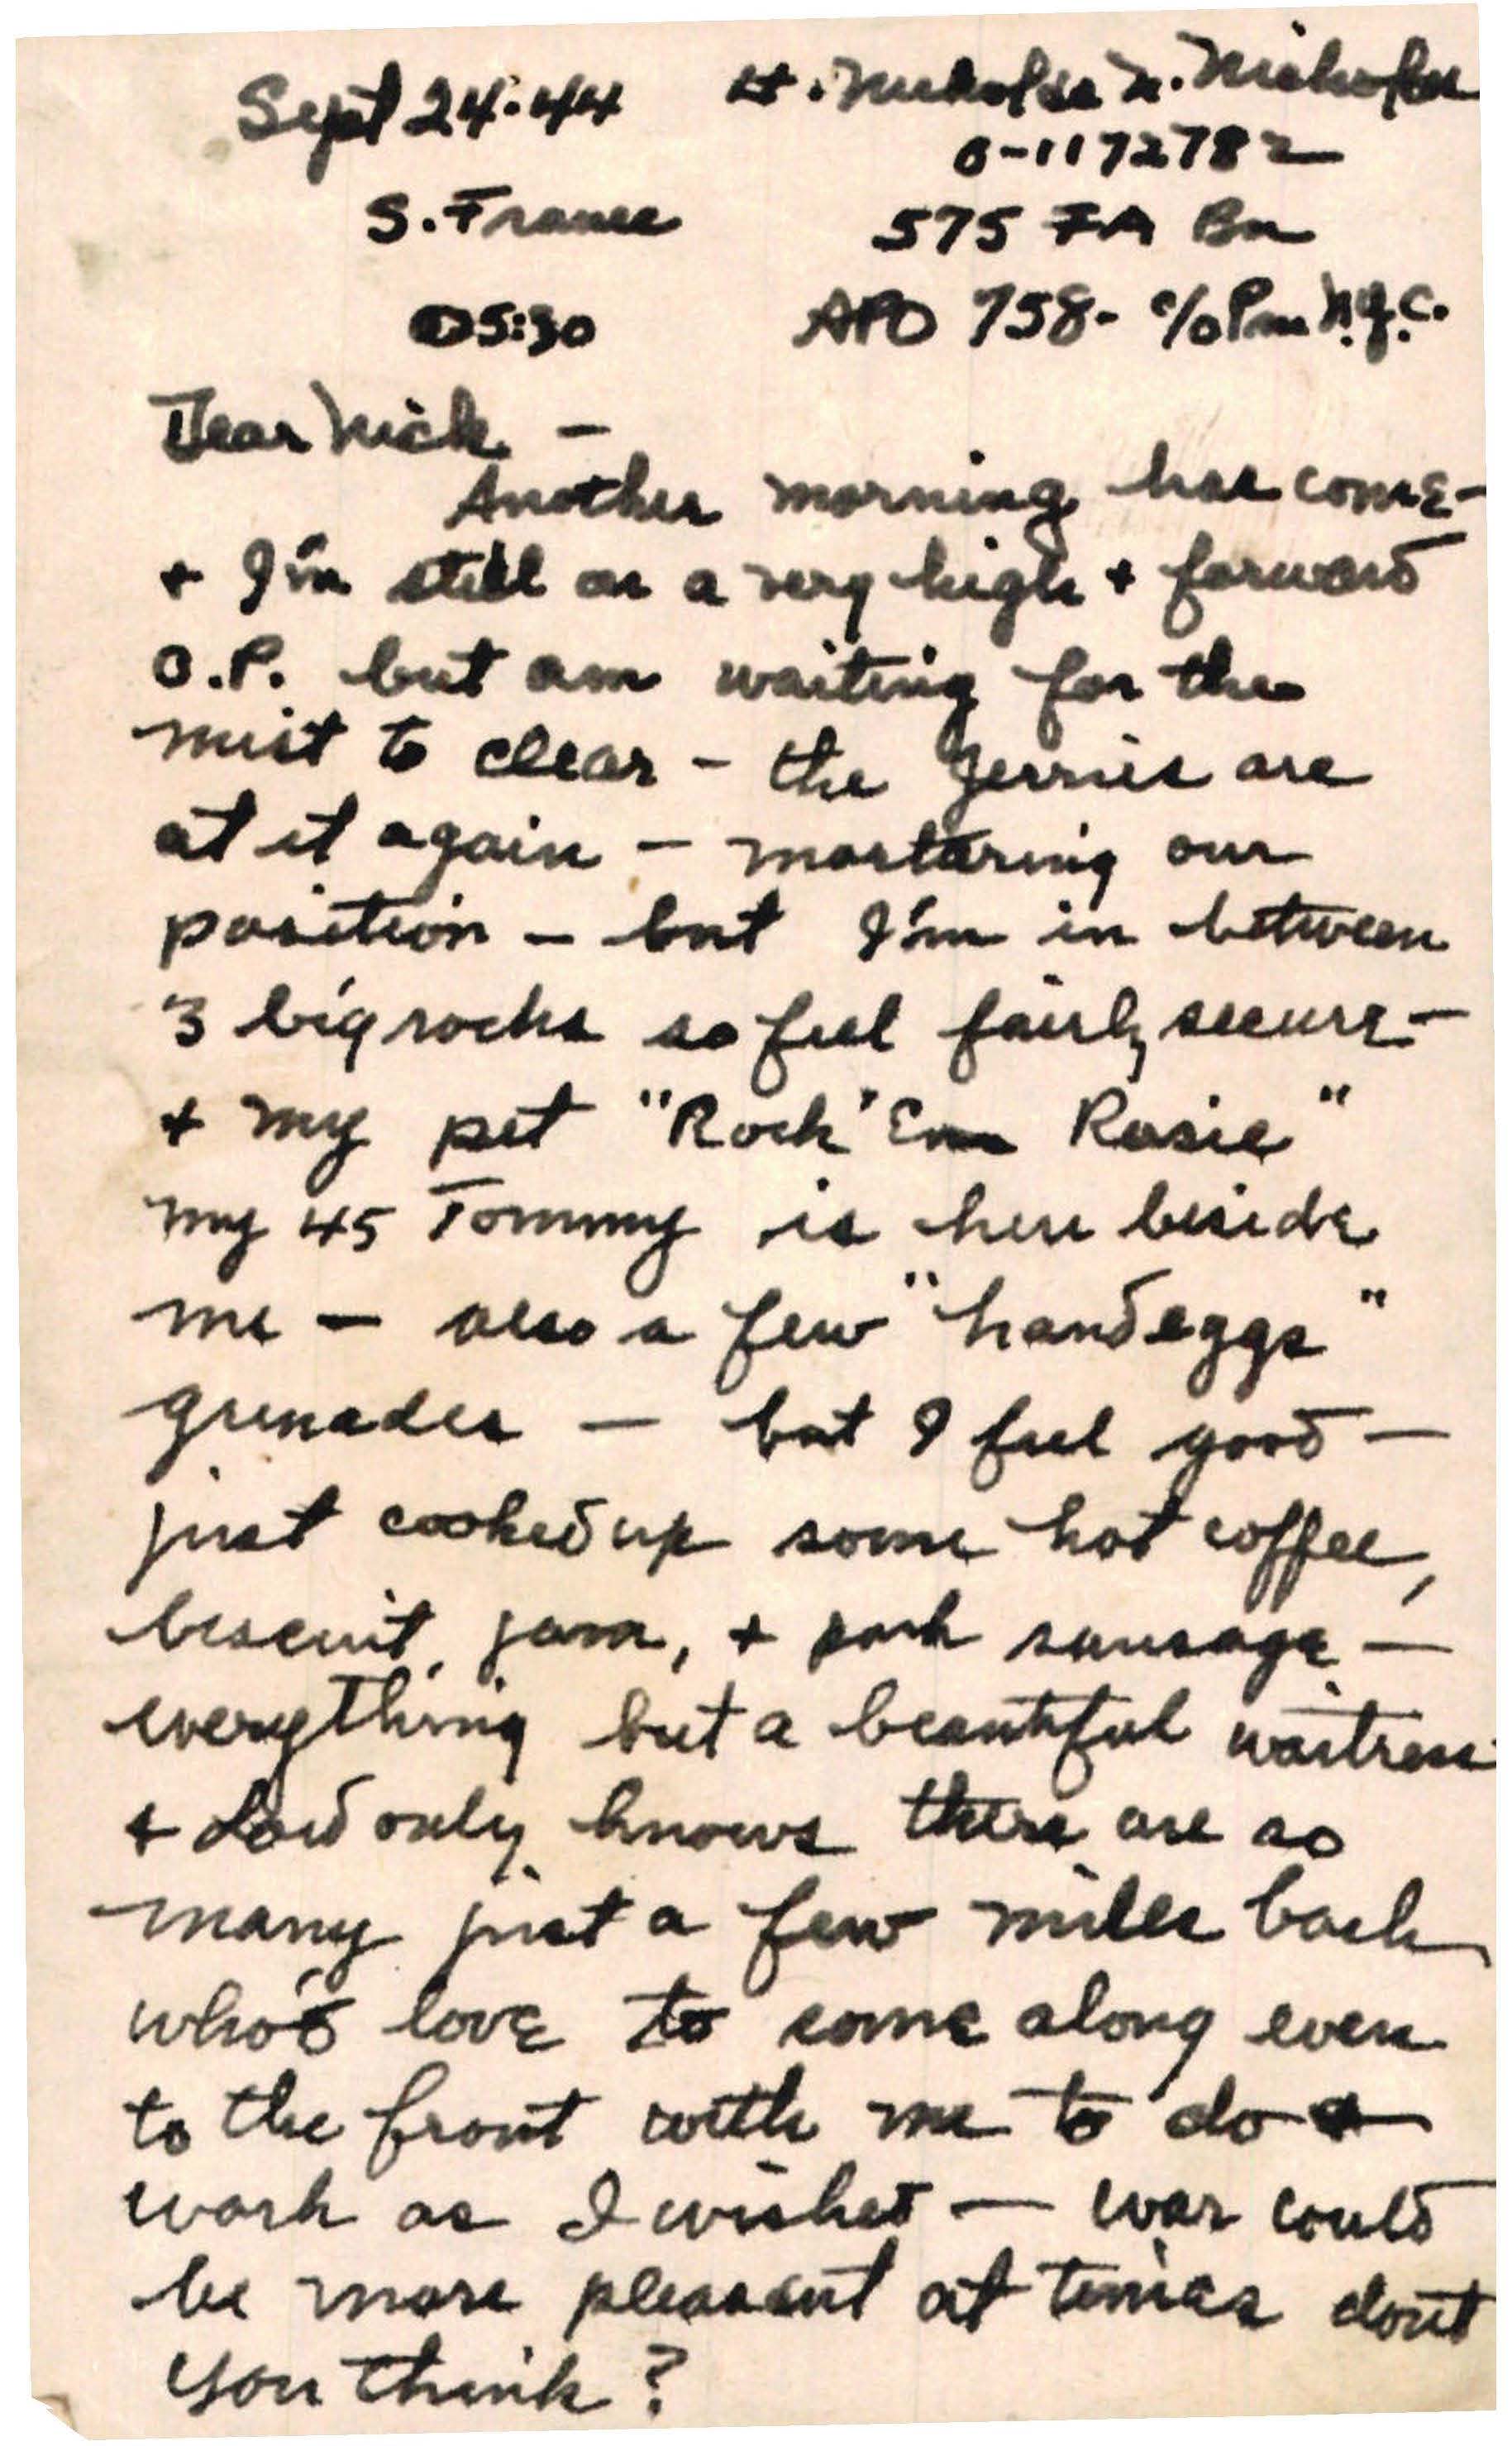 Sept 24.44 Lt. Nicholas N. Nicholas
0-1172782
S. France 575 FA Bn
05:30 APO 758- c/o Pm N.Y.C.
Dear Nick -
Another morning has come -
+ I'm still on a very high + forward
O.P. but am waiting for the
mist to clear - the Jerries are
at it again - mortaring our
position - but I'm in between
3 big rocks so feel fairly secure -
+ my pet "Rock 'Em Rosie"
my 45 Tommy is here beside
me - also a few "hand eggs"
grenades - but I feel good -
just cooked up some hot coffee,
biscuit, jam, + pork sausage -
everything but a beautiful waitress
+ Lord only knows there are so
many just a few miles back
who'd love to come along even
to the front with me to do
work as I wished - war could
be more pleasant at times don't
you think?